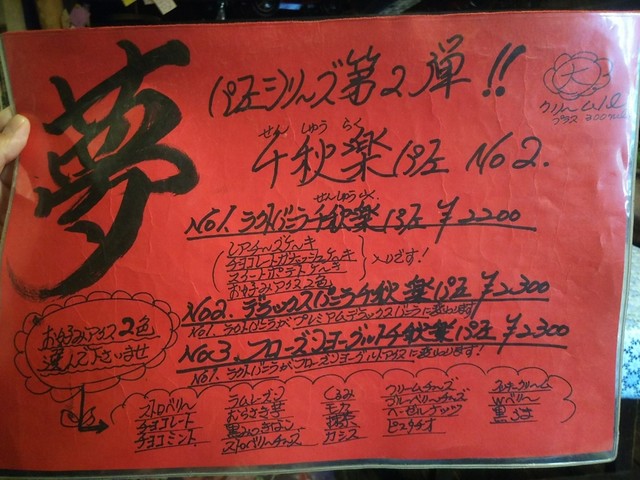 夢
パフェシリーズ第2弾!!
大
クリーム大
プラス200
せんしゅうらく
千秋楽パフェ No2.
せんしゅうらく
No1. ラクトバニラ千秋楽パフェ ¥2200
レアチーズケーキ
チョコレートガナッシュケーキ
スイートポテトケーキ
お好みアイス2色
入りです!
No2. デラックスバニラ千秋楽パフェ ¥2300
No1. ラクトバニラがプレミアムデラックスバニラに
No3. フローズンヨーグルト千秋楽パフェ ¥2300
No1. ラクトバニラがフローズンヨーグルトアイスに
お好みアイス2色
選んで下さいませ
ストロベリー
チョコレート
チョコミント
ラムレーズン
むらさき芋
黒みつきなこ
ストロベリーチーズ
くるみ
モカ
抹茶
カシス
クリームチーズ
ブルーベリーチーズ
ヘーゼルナッツ
ピスタチオ
Wベリー
黒ごま